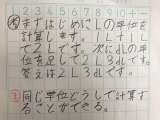 1 2 3 4 5 6 7 8 9 10
ますはじめにLの単位を
計算します。1L+1L=
で2L です。次にdLの単
位を足して2L3dLです。
答えは2L3dLです。
同じ単位どうしで計算す
ることができる。